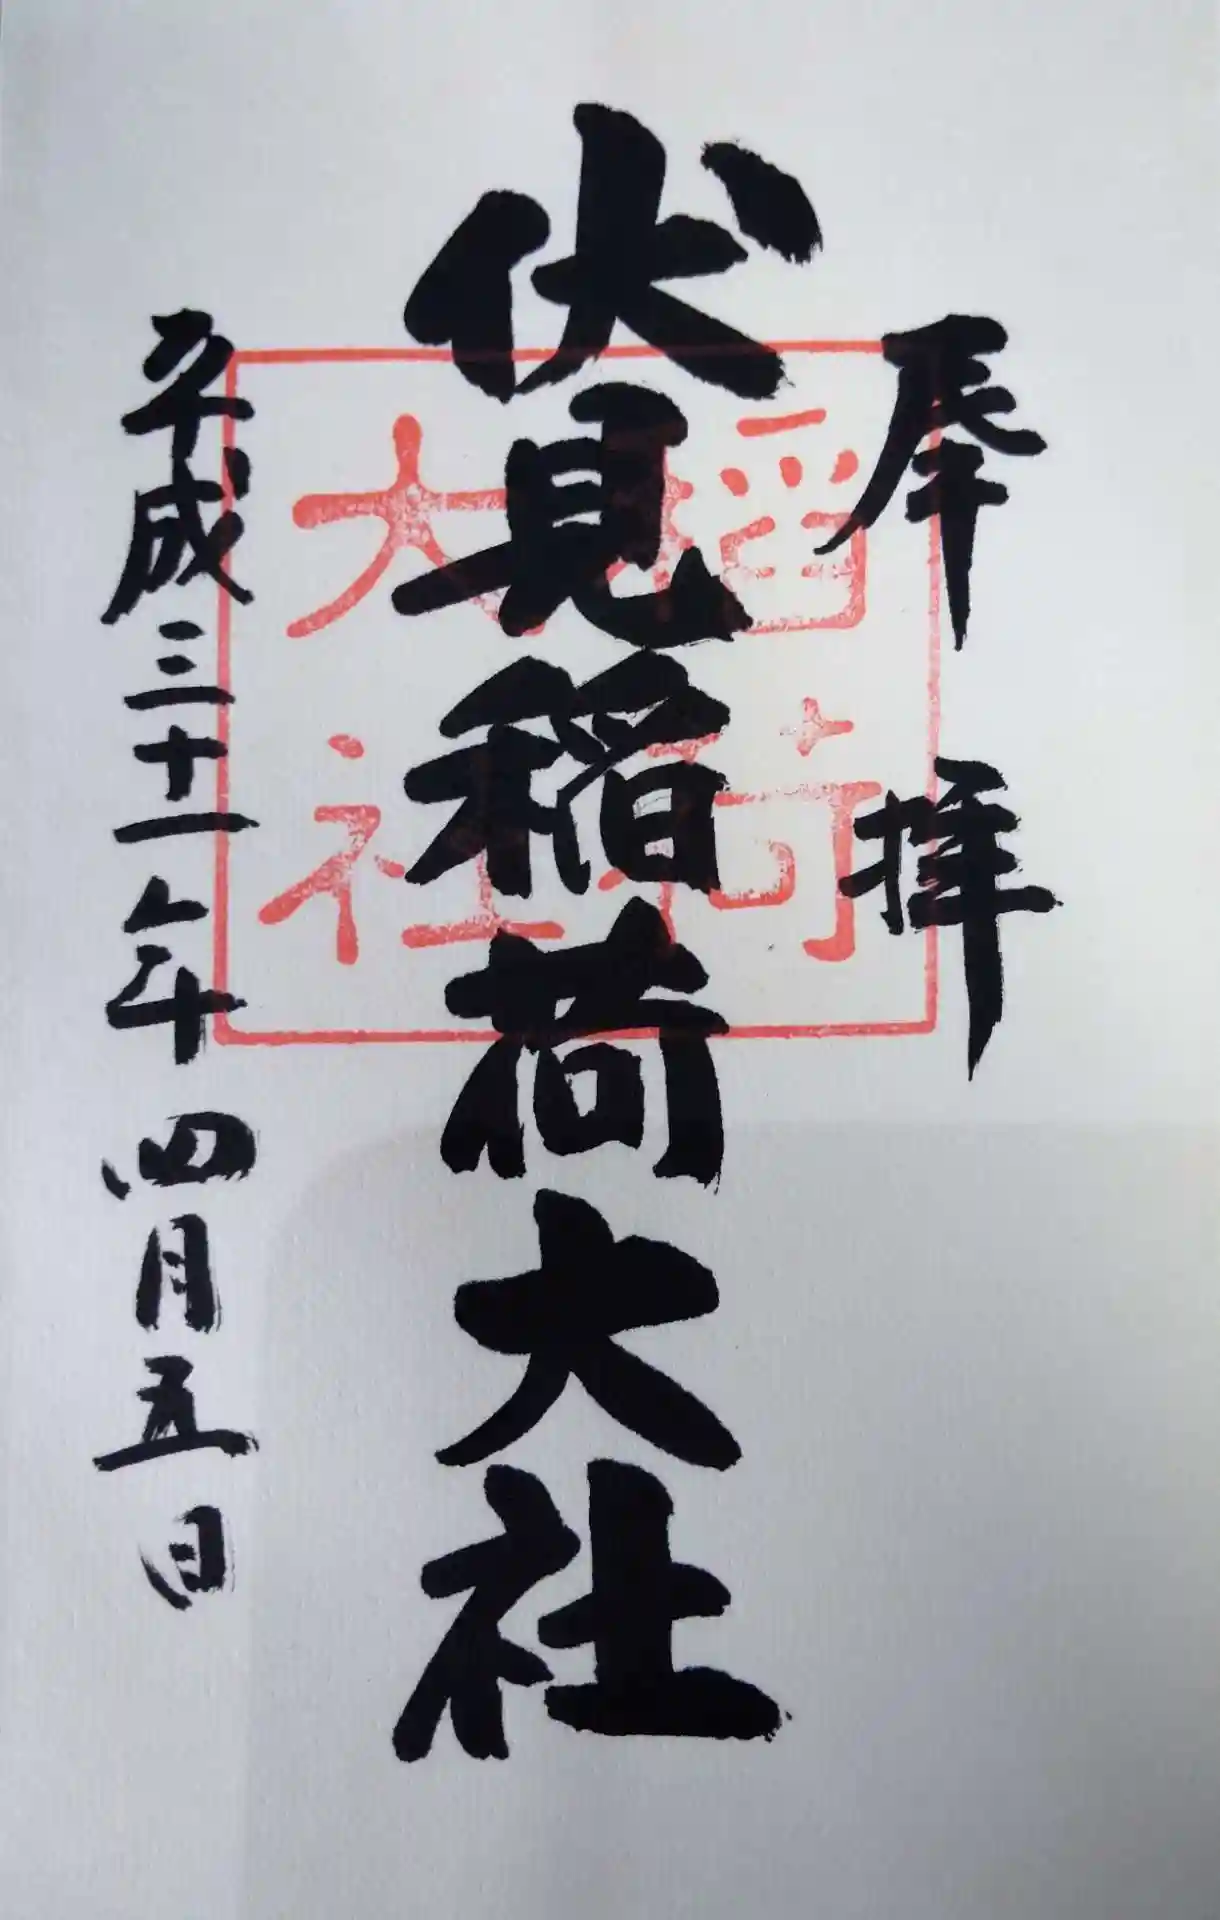 奉拝
伏見稲荷大社
平成三十一年四月五日
稲荷
大社